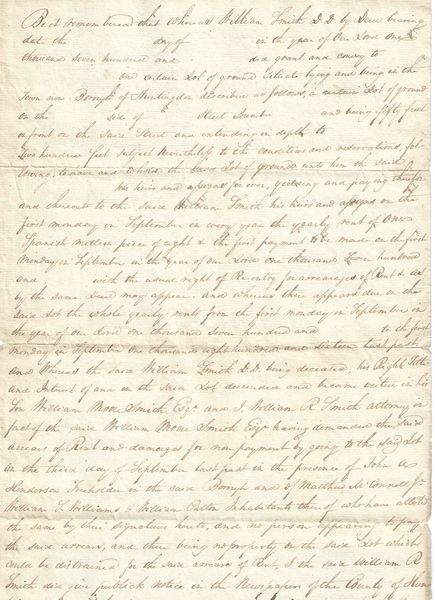 Be it remembered that Whereas William Smith D.D. by Deed bearing
date the day of in the year of Our Lord One
thousand seven hundred and did grant and convey to
one certain Lot of ground Situate lying and being in the
Town now Borough of Huntingdon described as follows, a certain Lot of ground
on the side of Street Number and being fifty feet
in front on the said Street and extending in depth to
two hundred feet subject nevertheless to the conditions and reservations, fol-
lowing, to have and to hold the said Lot of ground unto him the said
his heirs and assigns for ever, yielding and paying therefor
and thereout to the said William Smith his heirs and assigns on the
first monday in September in every year the yearly rent of One
Spanish milled piece of eight & the first payment to be made on the first
Monday in September in the year of our Lord one thousand seven hundred
and with the usual right of Re-entry for arrearages of Rent & as
by the same Deed may appear. and whereas there appears due on the
said Lot the whole yearly rents from the first monday in September in
the year of our Lord one thousand seven hundred and to the first
monday in September one thousand eight hundred and sixteen last past
and Whereas the said William Smith D.D. being deceased, his Right Title
and Interest of and in the said Lot descended and became vested in his
Son William Moore Smith Esqr. and I, William R Smith attorney in
fact of the said William Moore Smith Esqr. having demanded the said
arrears of Rent and damages for non payment by going to the said Lot
on the third day of September last past in the presence of John A
Henderson Freeholder in the said Borough and of Matthew McConnell Jr.
William Williams & William Patton Inhabitants thereof who have attested
the same by their signatures hereto, and no person appearing to pay
the said arrears, and there being no property on the said Lot which
could be distrained for the said arrears of Rent, I the said William R
Smith did give publick notice in the Newspapers of the County of Hun